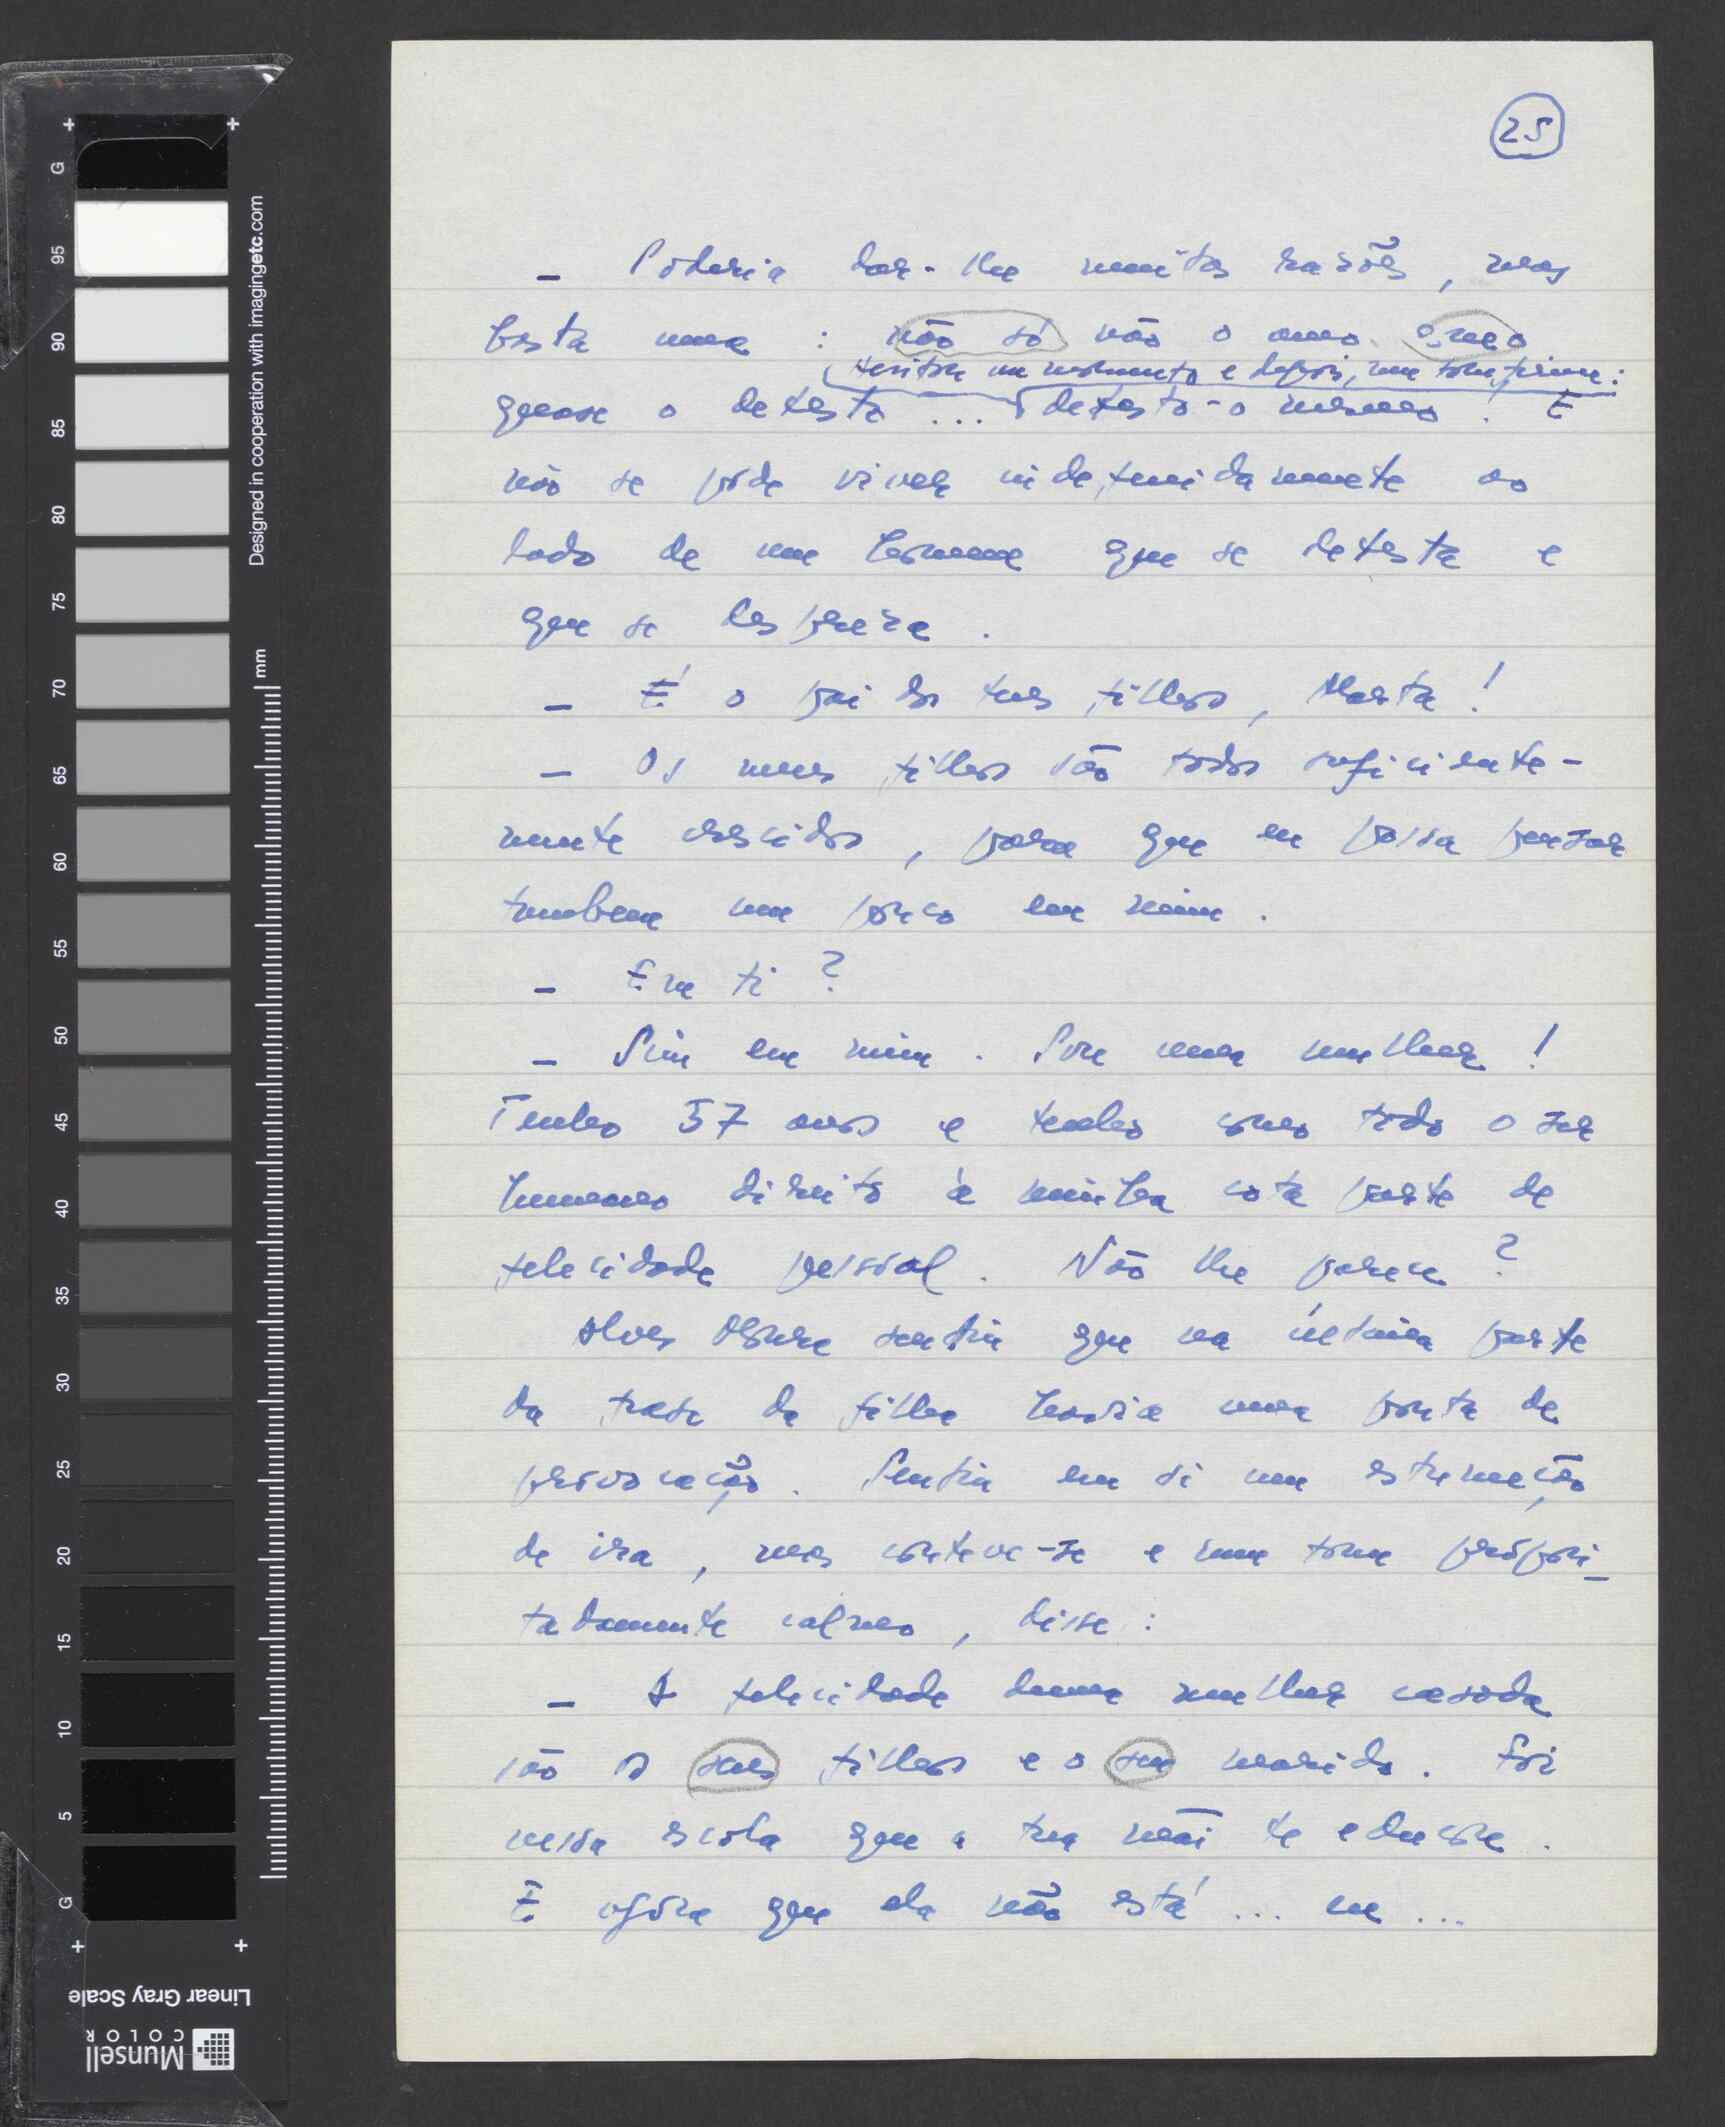 25
– Poderia dar-lhe muitas razões, mas
basta uma : não só não o amo como
hesitou um momento e depois, num tom firme:
quase o detesto ... detesto-o mesmo. E
não se pode viver indefinidamente ao
lado de um homem que se detesta e
que se despreza.
– É o pai dos teus filhos, Marta!
– Os meus filhos são todos suficiente-
mente crescidos, para que eu possa pensar
tambem um pouco em mim.
– Em ti?
– Sim em mim. Sou uma mulher!
Tenho 37 anos e tenho como todo o ser
humano direito à minha cota parte de
felicidade pessoal. Não lhe parece?
Alves sentiu que na última parte
da frase da filha havia uma ponta de
provocação. Sentiu em si um estremeção
de ira, mas conteve-se e num tom proposi-
tadamente calmo, disse:
– A felicidade duma mulher casada
são os seus filhos e o seu marido. Foi
nessa escola que a tua mãi te educou.
E agora que ela não está ... eu ...
G
95
90
85
80
75
70
65
60
55
50
45
40
35
30
25
20
15
10
5
G
Designed in cooperation with imagingetc.com
mm
Linear Gray Scale
Munsell
COLOR